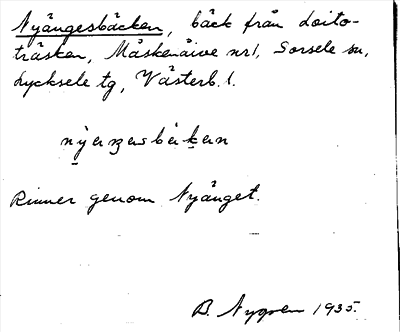 Nyängesbäcken, bäck från Loito-
träsken, Måskenåive nr 1, Sorsele sn,
Lycksele tg, Västerb. l.
Rinner genom Nyänget.
B. Nygren 1935.